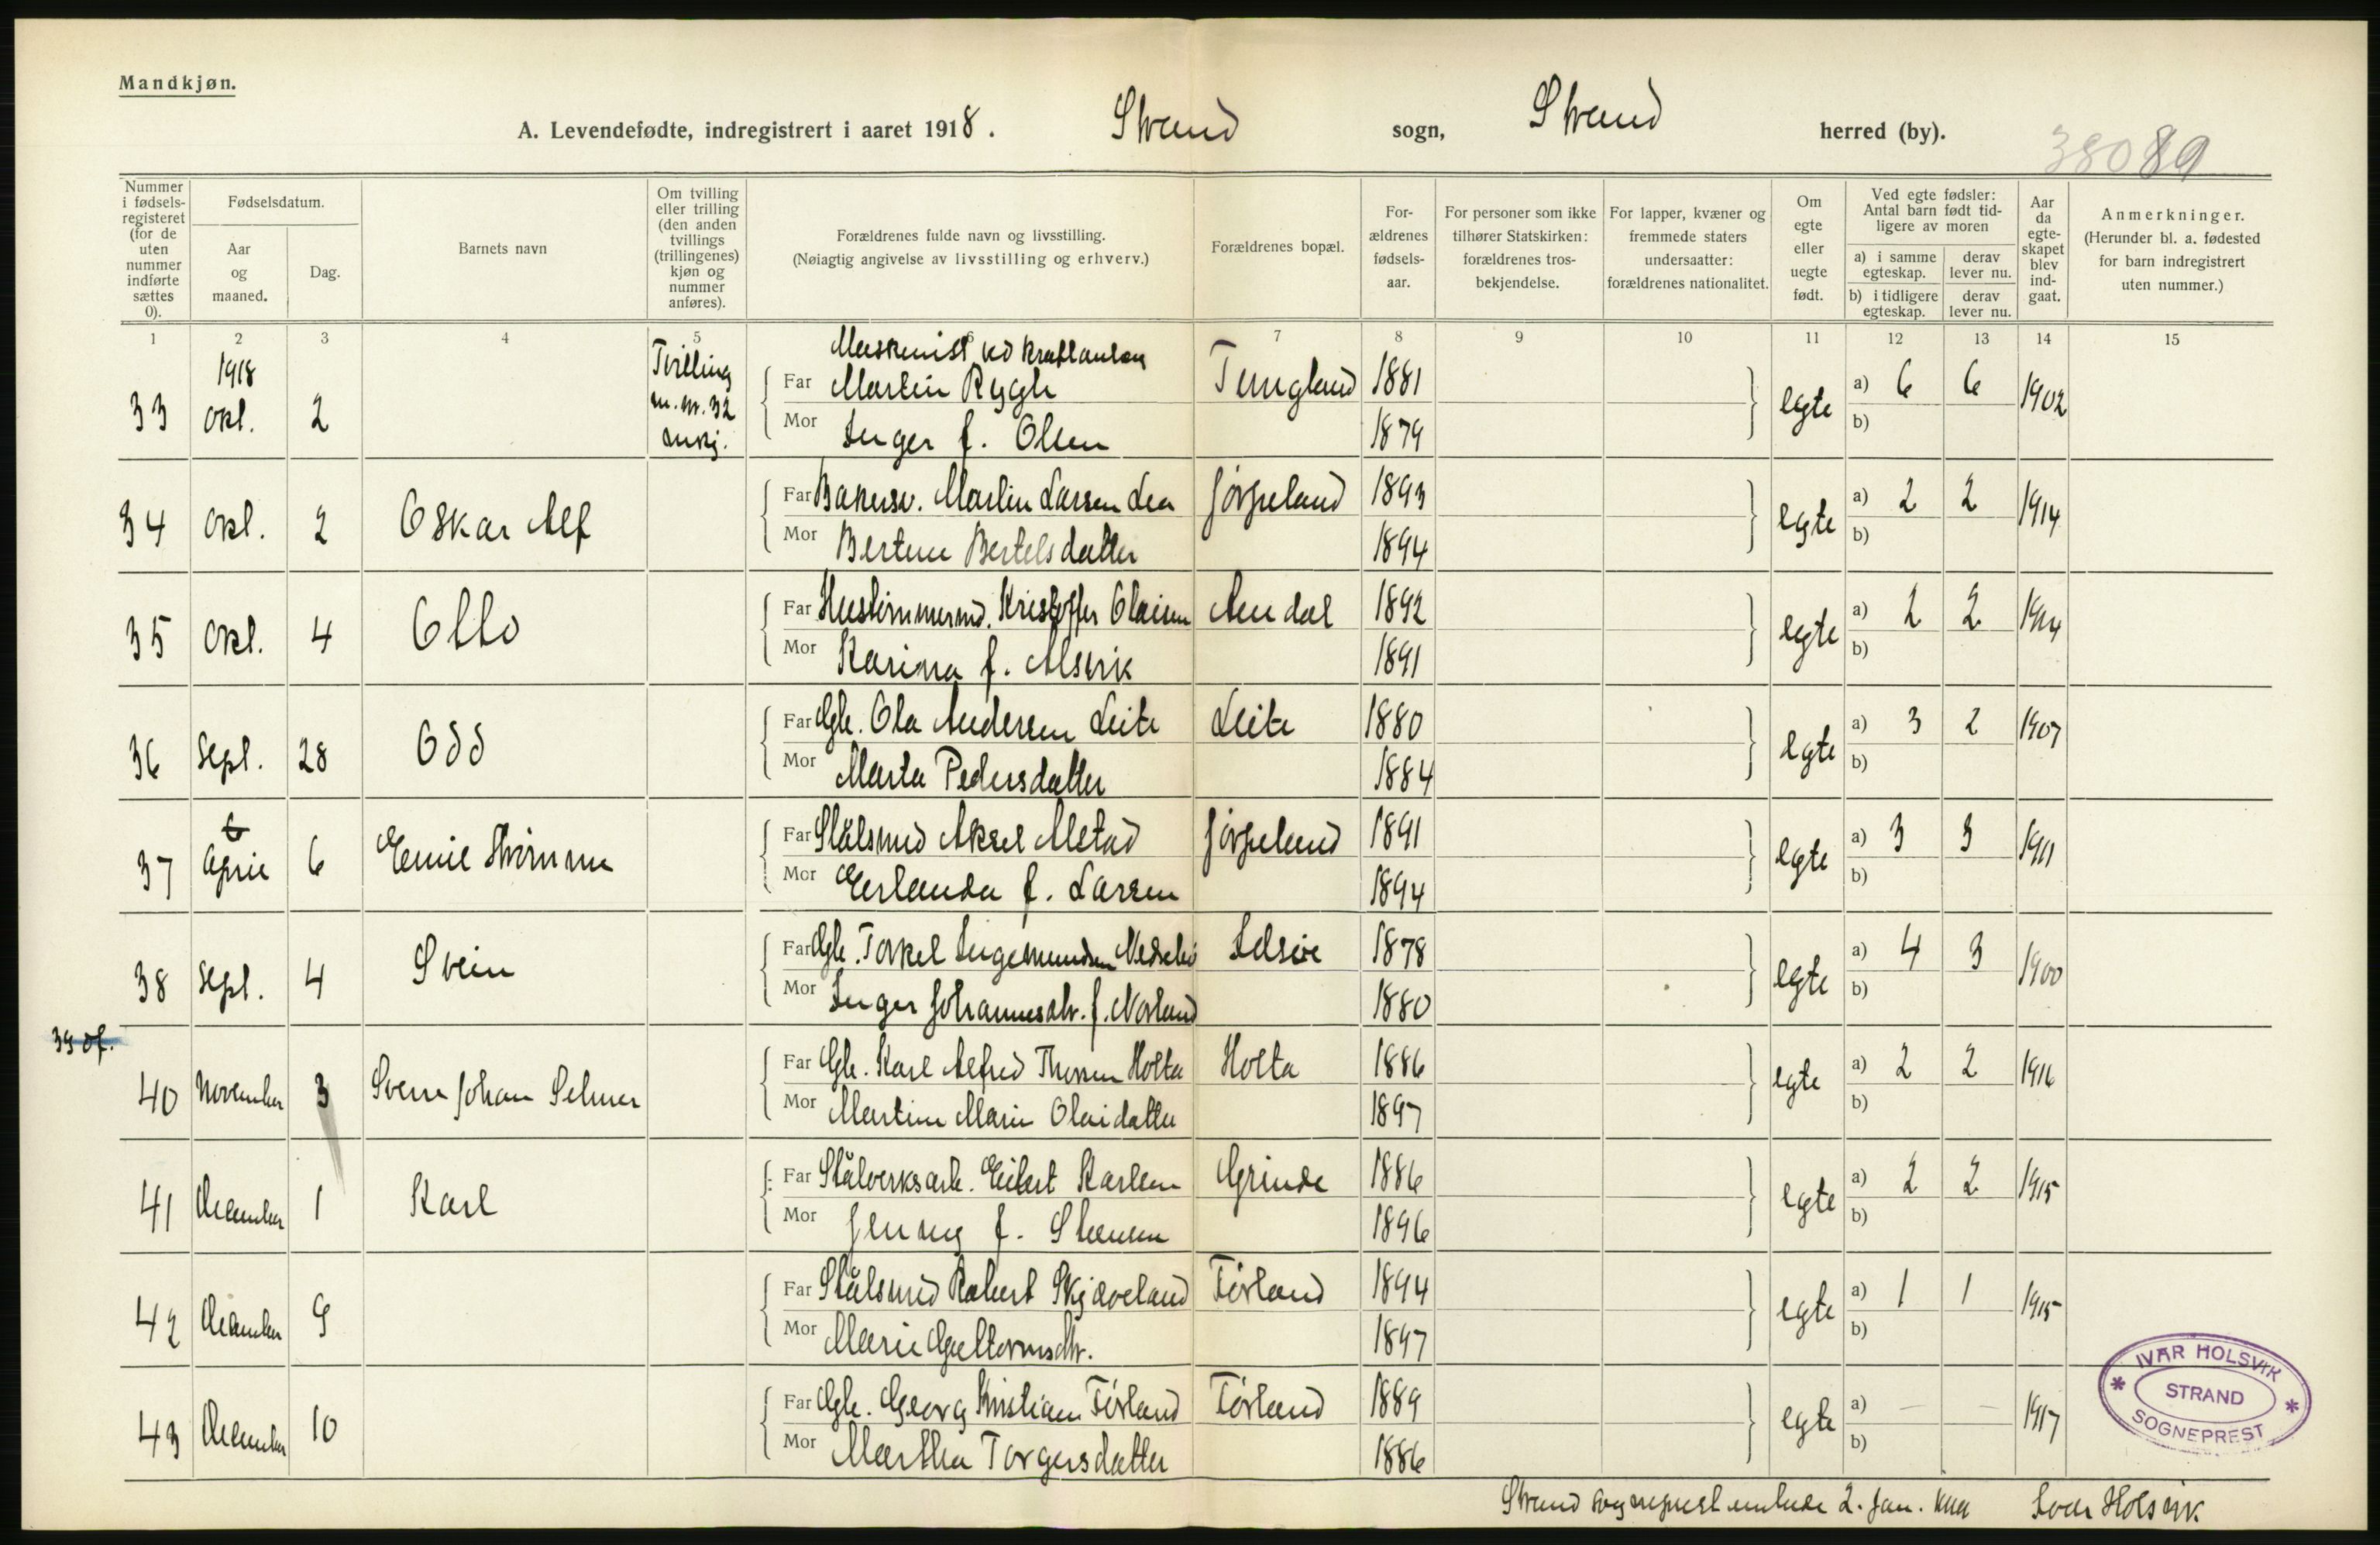 Mandkjøn.
A. Levendefødte, indregistrert i aaret 1918. Strand sogn, Strand herred (by).
38089
Nummer i fødsels-registeret (for de uten nummer indførte sættes 0).
Fødselsdatum.
Aar og maaned.
Dag.
Barnets navn
Om tvilling eller trilling (den anden tvillings (trillingenes) kjøn og nummer anføres).
Forældrenes fulde navn og livsstilling.
(Nøiagtig angivelse av livsstilling og erhverv.)
Forældrenes bopæl.
For-ældrenes fødsels-aar.
For personer som ikke tilhører Statskirken: forældrenes tros-bekjendelse.
For lapper, kvæner og fremmede staters undersaatter: forældrenes nationalitet.
Om egte eller uegte født.
Ved egte fødsler: Antal barn født tid-ligere av moren
a) i samme egteskap. derav lever nu.
b) i tidligere egteskap. derav lever nu.
Aar da egte-skapet blev ind-gaat.
Anmerkninger.
(Herunder bl. a. fødested for barn indregistrert uten nummer.)
1 2 3 4 5 6 7 8 9 10 11 12 13 14 15
33 1918 Okt. 2 Tvilling m. nr. 32 Far Maskinist ved Martin Rygh Tungland 1881 egte a) 6 6 1902
Mor Inger f. Olsen 1879 b)
34 Okt. 2 Oskar Alf Far Bakersv. Martin Larsen Lea Jørpeland 1893 egte a) 2 2 1914
Mor Bertine Bertelsdatter 1894 b)
35 Okt. 4 Otto Far Hustømmermd. Kristoffer Olaisen 1892 egte a) 2 2 1914
Mor Karina f. Alsvik 1891 b)
36 Sept. 28 Odd Far Gbr. Ola Andersen Leite Leite 1880 egte a) 3 2 1907
Mor Marta Pedersdatter 1884 b)
37 April 6 Emil Far Stålsmed Aksel Alstad Jørpeland 1891 egte a) 3 3 1911
Mor Erlanda f. Larsen 1894 b)
38 Sept. 4 Svein Far Gbr. Torkel Ingemundsen Idsøe 1878 egte a) 4 3 1900
Mor Inger Johannesdtr. f. Norland 1880 b)
39 df.
40 November 3 Svein Johan Selmer Far Gbr. Karl Alfred Thorsen Holta Holta 1886 egte a) 2 2 1916
Mor Martine Marie Olaidatter 1897 b)
41 December 1 Karl Far Stålverksarb. Eilert Karlsen Grinde 1886 egte a) 2 2 1915
Mor Jenny f. Steensen 1896 b)
42 December 9 Far Stålsmed Robert Skjæveland Førland 1894 egte a) 1 1 1915
Mor Marie Guttormsdtr. 1897 b)
43 December 10 Far Gbr. Georg Kristian Førland Førland 1889 egte a) — — 1917
Mor Martha Torgersdatter 1886 b)
IVAR HOLSVIK
STRAND
SOGNEPREST
Strand sogneprestembede 2. Jan. Ivar Holsvik